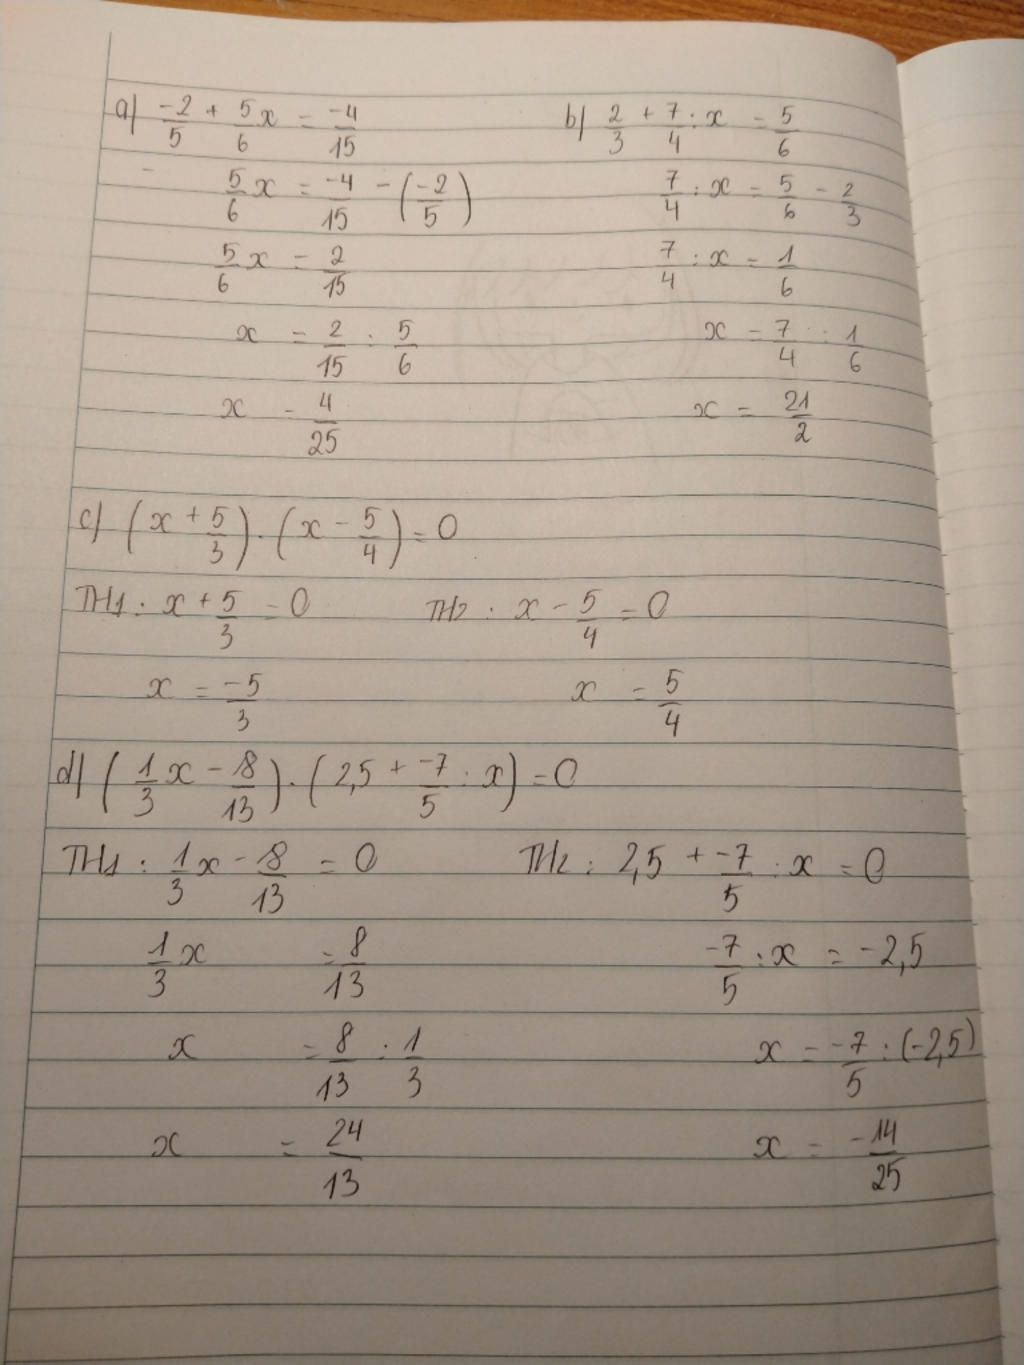 a) -2/5 + 5/6 x = -4/15
5/6 x = -4/15 - (-2/5)
5/6 x = 2/15
x = 2/15 : 5/6
x = 4/25
b) 2/3 + 7/4 : x = 5/6
7/4 : x = 5/6 - 2/3
7/4 : x = 1/6
x = 7/4 : 1/6
x = 21/2
c) (x + 5/3) . (x - 5/4) = 0
TH1 : x + 5/3 = 0
x = -5/3
TH2 : x - 5/4 = 0
x = 5/4
d) (1/3 x - 8/13) . (2,5 + -7/5 : x) = 0
TH1 : 1/3 x - 8/13 = 0
1/3 x = 8/13
x = 8/13 : 1/3
x = 24/13
TH2 : 2,5 + -7/5 : x = 0
-7/5 : x = -2,5
x = -7/5 : (-2,5)
x = -14/25